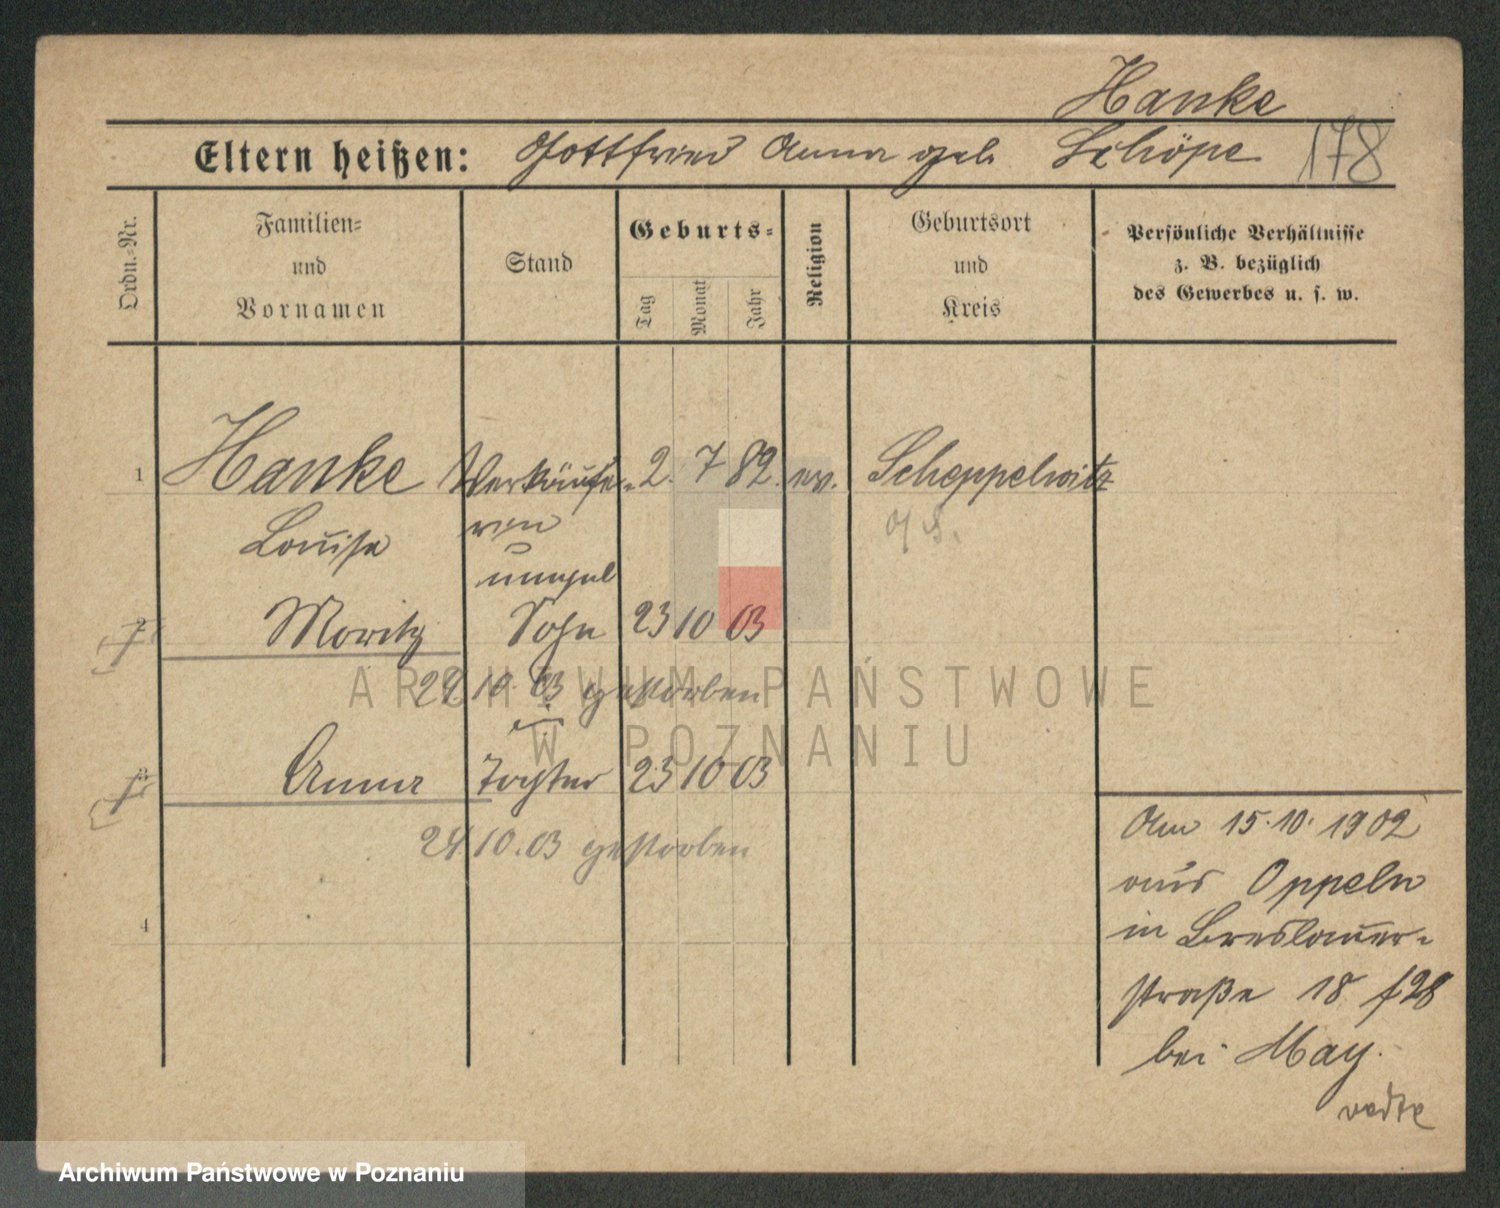 Hanke
Eltern heißen: Gottfried Anna geb Schöpe 178
Ordn.=Nr.
Familien=
und
Vornamen
Stand
Geburts=
Tag
Monat
Jahr
Religion
Geburtsort
und
Kreis
Persönliche Verhältnisse
z. B. bezüglich
des Gewerbes u. s. w.
1 Hanke Verkäufe- 2. 7 82. ev. Scheppelwitz
Louise rin O/S.
unverh
2 Moritz Sohn 23 10 03
24 10. 03 gestorben
3 Anna Tochter 23 10 03
24 10. 03 gestorben
4
Am 15. 10. 1902
aus Oppeln
in Breslauer-
straße 18 f28
bei May.
ARCHIWUM PAŃSTWOWE
W POZNANIU
Archiwum Państwowe w Poznaniu